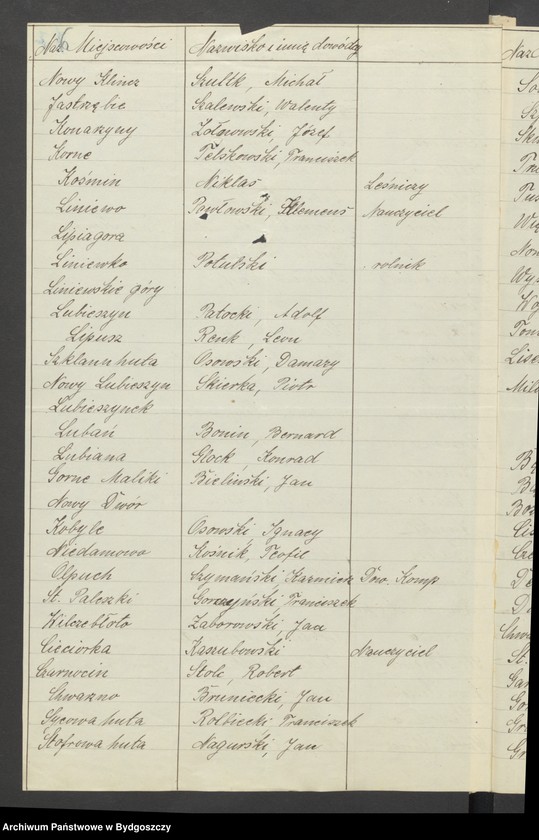 Naz. Miejscowości Nazwisko i imię dowódcy
Nowy Klincz Szultk, Michał
Jastrzębie Szalewski, Walenty
Konarzyny Żołnowski, Józef
Korne Felskowski, Franciszek
Kośmin Niklas Leśniczy
Liniewo Pawłowski, Klemens Nauczyciel
Lipiagora
Liniewko Potulski rolnik
Liniewskie góry
Lubieszyn Patocki, Adolf
Lipusz Renk, Leon
Szklannhuta Osowski, Damazy
Nowy Lubieszyn Skierka, Piotr
Lubieszynek
Lubań Bonin, Bernard
Lubiana Glock Konrad
Gorne Maliki Bieliński, Jan
Nowy Dwór
Kobyle Osowski, Ignacy
Niedamowo Kośnik, Teofil
Olpuch Szymański Kazmierz Dow. Komp
St. Paleszki Gorczyński, Franciszek
Wilczebłoto Zaborowski, Jan
Cieciorka Kaszubowski Nauczyciel
Czarnocin Stolc, Robert
Chwarzno Bruniecki, Jan
Sycowa huta Rolbiecki Franciszek
Stofrowa huta Nagurski, Jan
Archiwum Państwowe w Bydgoszczy